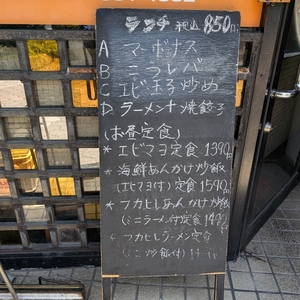 ランチ 税込 850円
A マーボナス
B ニラレバ
C エビ玉子炒め
D ラーメン+焼餃子
(お昼定食)
* エビマヨ定食 1390円
* 海鮮あんかけ炒飯
(エビマヨ付)定食 1590円
* フカヒレあんかけ炒飯
(ミニラーメン付)定食
* フカヒレラーメン定食
(ミニ炒飯付)